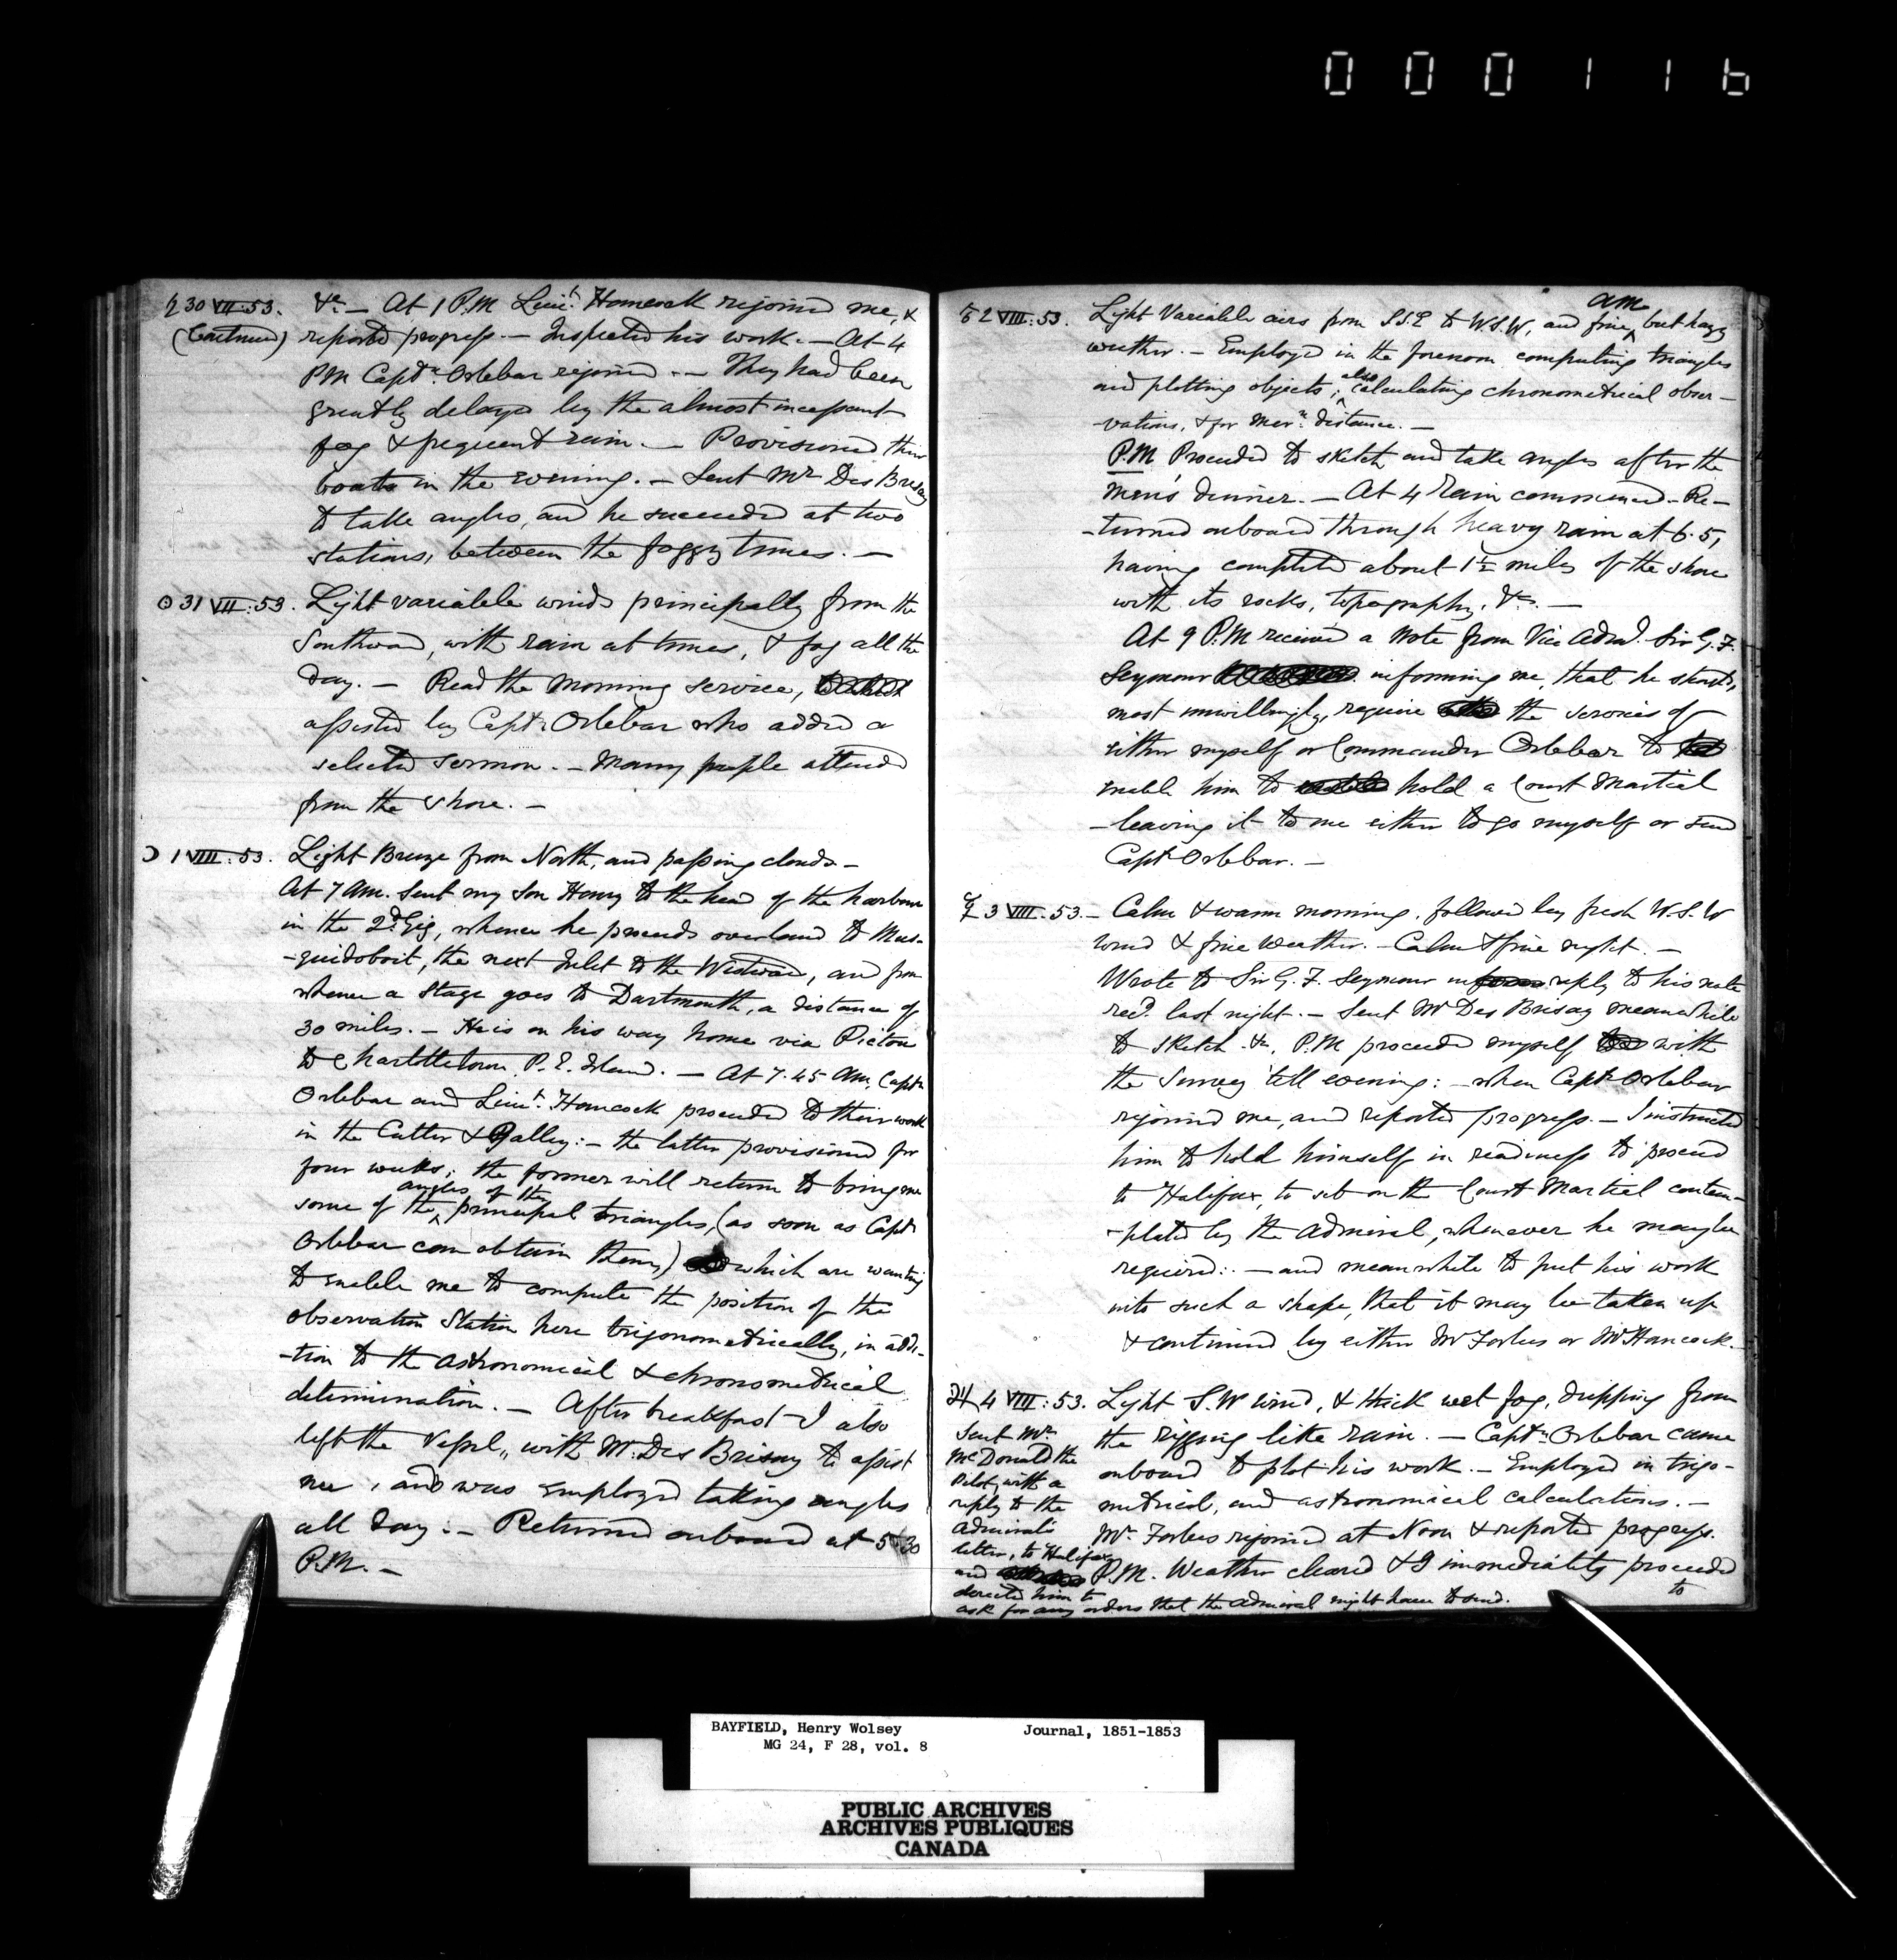 000116
♄ 30 VII:53. &c. — At 1 P.M Lieut. Hancock rejoined me, &
(Continued) reported progress. — Inspected his work. — At 4
PM Captn. Orlebar rejoined. — They had been
greatly delayed by the almost incessant
fog & frequent rain. — Provisioned their
boats in the evening. — Sent Mr Des Brisay
to take angles, and he succeeded at two
stations, between the foggy times. —
☉ 31 VII:53. Light variable winds principally from the
Southward, with rain at times, & fog all the
day. — Read the Morning Service,
assisted by Captn Orlebar who added a
selected sermon. — Many people attended
from the shore. —
☽ 1 VIII:53. Light Breeze from North, and passing clouds. —
At 7 AM. sent my Son Henry to the head of the harbour
in the 2d Gig, whence he proceeds overland to Mus-
-quidoboit, the next Inlet to the Westward, and from
whence a Stage goes to Dartmouth, a distance of
30 miles. — He is on his way home via Pictou
to Charlottetown P.E. Island. — At 7.45 AM. Captn
Orlebar and Lieut. Hancock proceeded to their work
in the Cutter & Galley: — the latter provisioned for
four weeks; the former will return to bring me
some of the angles of the principal triangles, (as soon as Captn
Orlebar can obtain them) which are wanting
to enable me to compute the position of the
Observation Station here trigonometrically, in addi-
-tion to the astronomical & chronometrical
determination. — After breakfast I also
left the Vessel, with Mr. Des Brisay to assist
me, and was employed taking angles
all day. — Returned onboard at 5.30
P.M. —
♂ 2 VIII:53. Light Variable airs from S.S.E to W.S.W, and fine am but hazy
weather. — Employed in the forenoon computing triangles
and plotting objects; also calculating chronometrical obser-
-vations, & for Mern. distance. —
P.M Proceeded to sketch and take angles after the
men's dinner. — At 4 Rain commenced. Re-
-turned onboard through heavy rain at 6.5,
having completed about 1½ miles of the shore
with its rocks, topography, &c. —
At 9 P.M received a Note from Vice Adml. Sir G.F.
Seymour informing me, that he should,
most unwillingly, require the services of
either myself or Commander Orlebar to
enable him to hold a Court Martial
— leaving it to me either to go myself or send
Captn Orlebar. —
☿ 3 VIII:53. — Calm & warm morning, followed by fresh W.S.W
wind & fine weather. — Calm & fine night. —
Wrote to Sir G.F. Seymour in reply to his note
recd. last night. — Sent Mr Des Brisay meanwhile
to sketch &c, P.M proceeded myself with
the Survey till evening: — when Captn Orlebar
rejoined me, and reported progress. — I instructed
him to hold himself in readiness to proceed
to Halifax, to sit on the Court Martial contem-
-plated by the Admiral, whenever he may be
required: — and meanwhile to put his work
into such a shape, that it may be taken up
& continued by either Mr Forbes or Mr Hancock. —
♃ 4 VIII:53. Light S.W wind, & thick wet fog, dripping from
the rigging like rain. — Captn. Orlebar came
onboard to plot his work. — Employed in trigo-
metrical, and astronomical calculations. —
Mr. Forbes rejoined at Noon & reported progress.
P.M. Weather cleared & I immediately proceeded
to
Sent Mr.
McDonald the
Pilot, with a
reply to the
Admiral's
letter, to Halifax
and
directed him to
ask for any orders that the Admiral might have to send.
BAYFIELD, Henry Wolsey Journal, 1851-1853
MG 24, F 28, vol. 8
PUBLIC ARCHIVES
ARCHIVES PUBLIQUES
CANADA